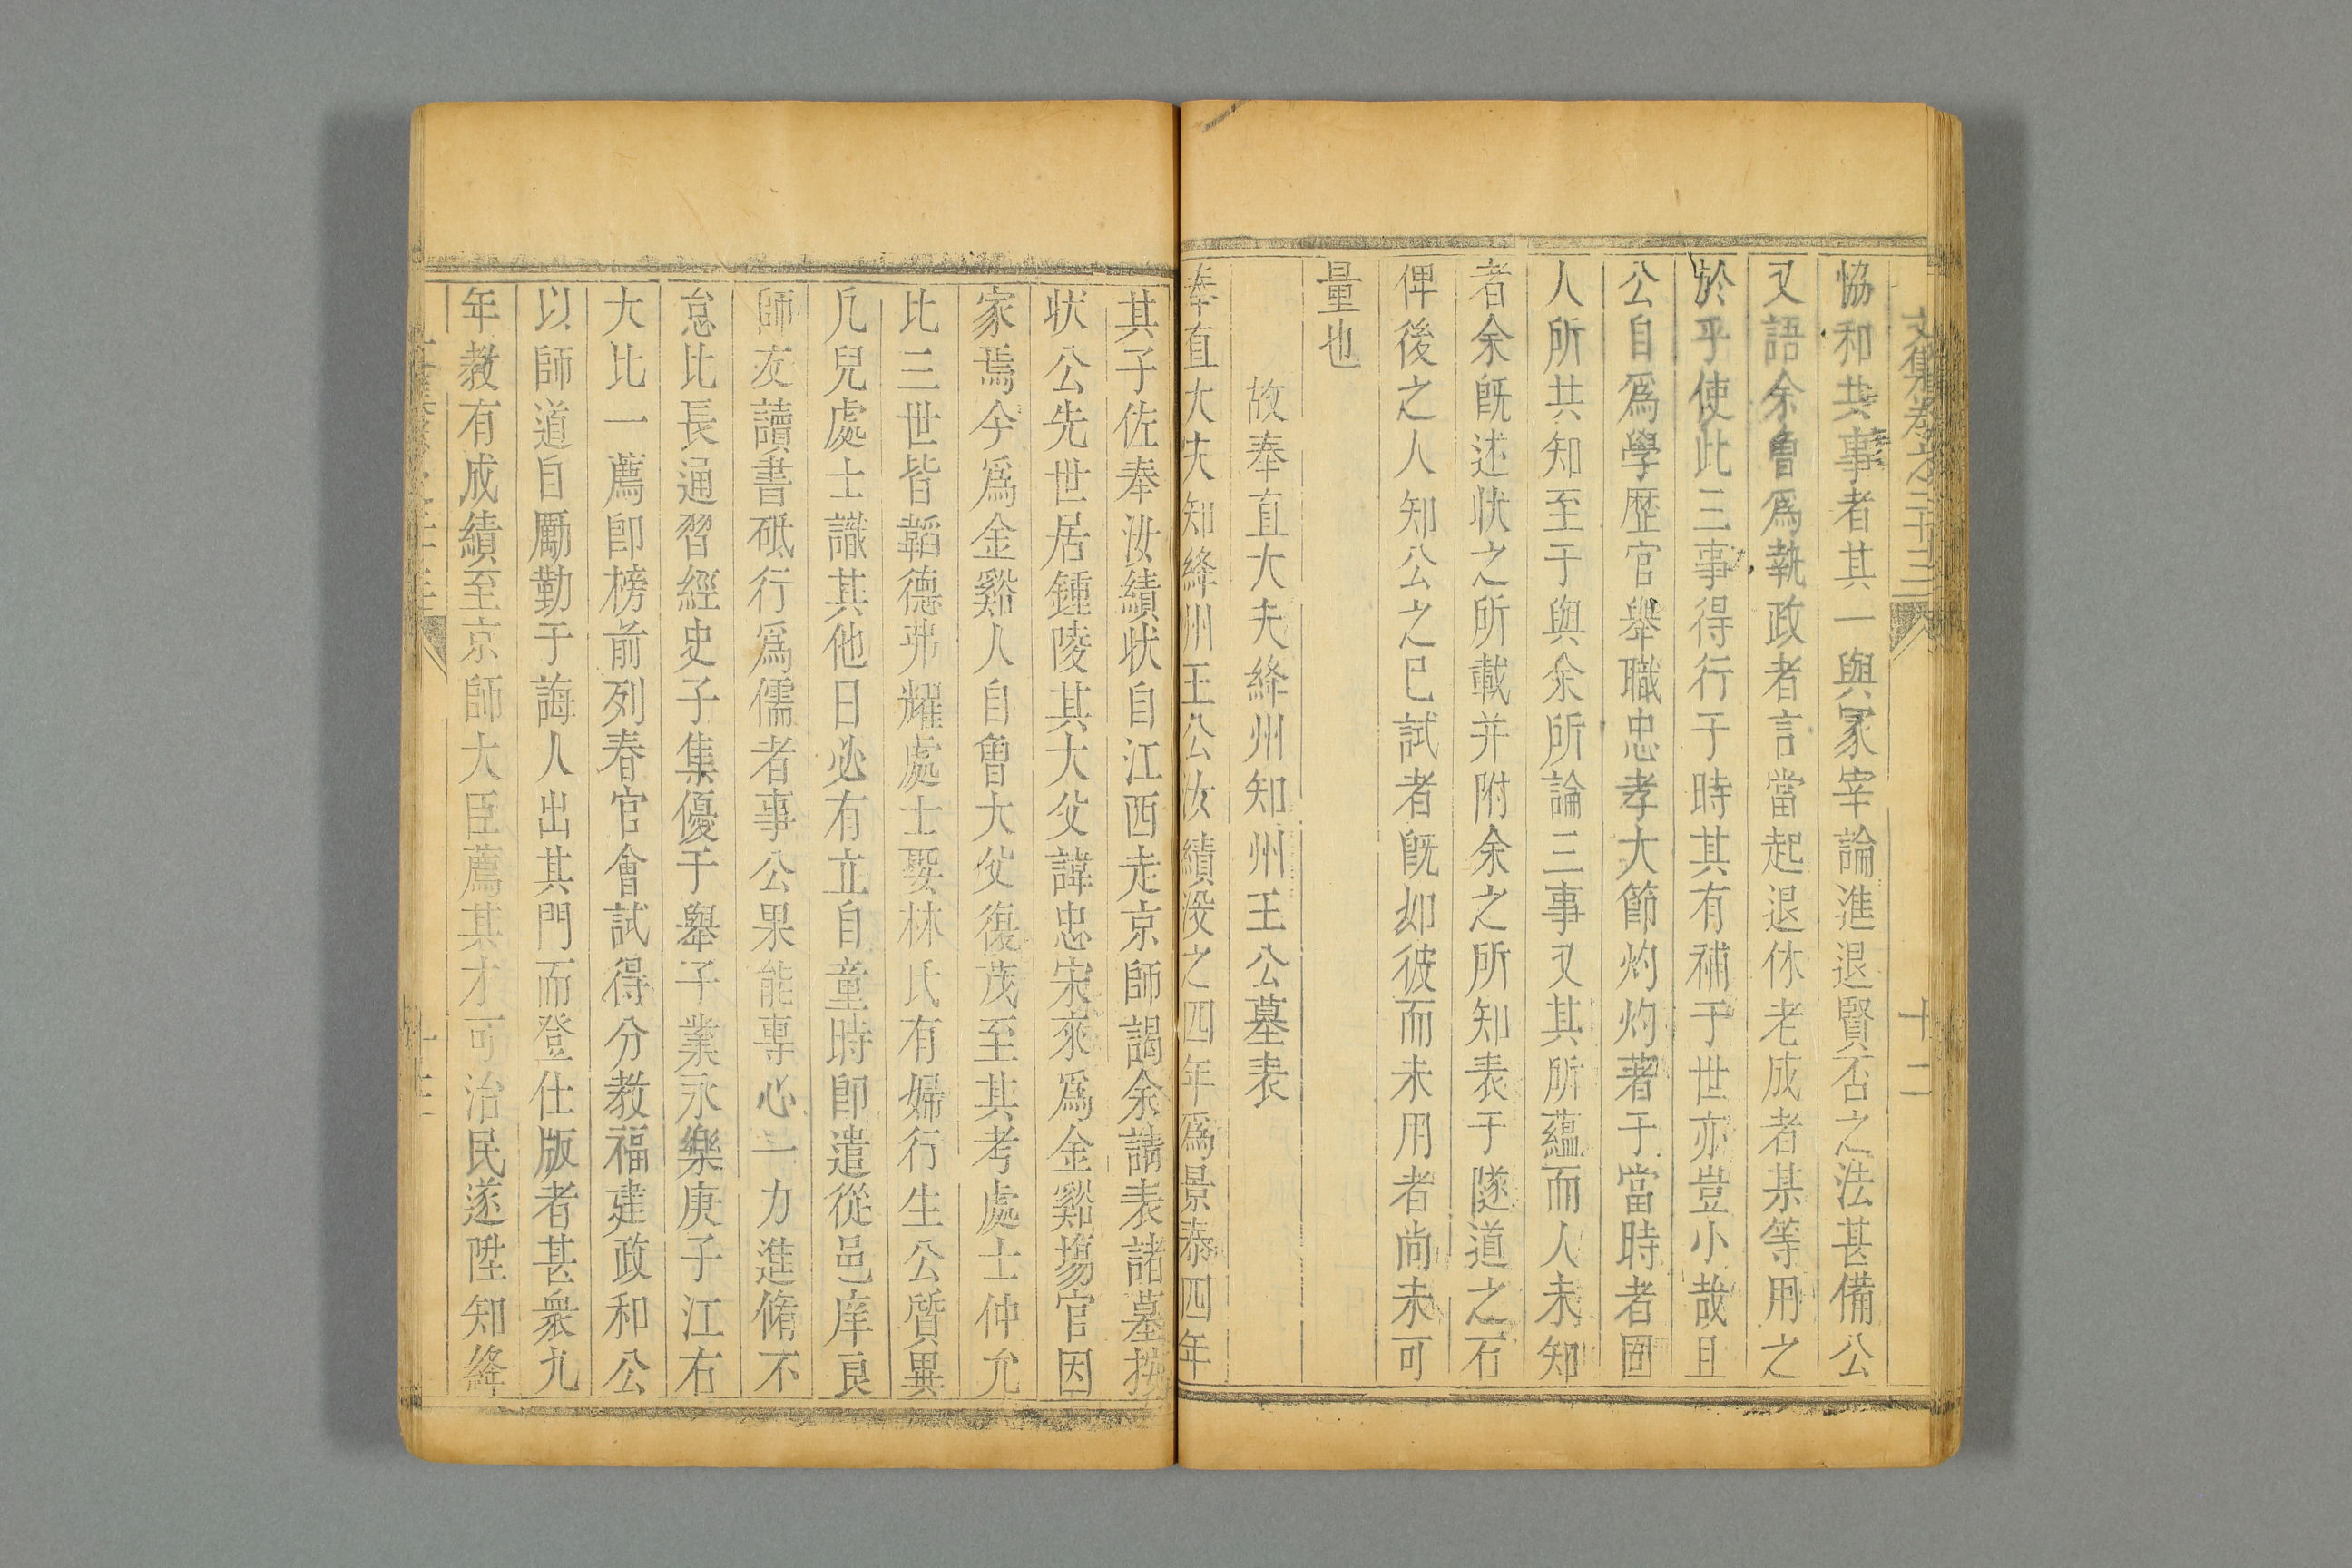 文集卷之三十三
十二
恊和共事者其一與冢宰論進退賢否之法甚備公
又語余魯爲執政者言當起退休老成者某等用之
於乎使此三事得行于時其有補于世亦豈小哉且
公自爲學歴官舉職忠孝大節灼灼著于當時者固
人所共知至于與余所論三事又其所蘊而人未知
者余既述状之所載并附余之所知表于隧道之石
俾後之人知公之巳試者旣如彼而未用者尚未可
量也
故奉直大夫絳州知州王公墓表
奉直大夫知絳州王公汝績没之四年爲景泰四年
其子佐奉汝績状自江西走京師謁余請表諸墓按
状公先世居鍾陵其大父諱忠宋來爲金谿塲官因
家焉今爲金谿人自魯大父復茂至其考處士仲允
比三世皆韜德弗耀處士娶林氏有婦行生公質異
凡兒處士識其他日必有立自童時卽遣從邑庠良
師友讀書砥行爲儒者事公果能専心一力進脩不
怠比長通習經史子集優于舉子業永樂庚子江右
大比一薦卽榜前列春官會試得分教福建政和公
以師道自勵勤于誨人出其門而登仕版者甚衆九
年教有成績至京師大臣薦其才可治民遂陞知絳